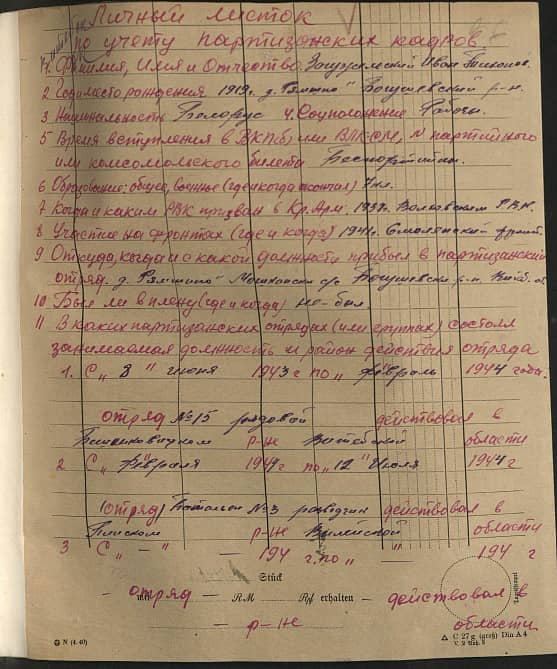 Личный листок
по учету партизанских кадров
1. Фамилия, Имя и Отчество Иван
2 Год и место рождения 1919г. д. Богушевский р-н.
3 Национальность Белорус 4. Соцположение Рабочий.
5 Время вступления в ВКП(б) или ВЛКСМ, № партийного
или комсомольского билета Беспартийный.
6 Образование: общее, военное (где и когда окончил) 7кл.
7 Когда и каким РВК призван в Кр. Арм. Р.В.К.
8 Участие на фронтах (где и когда) 1941г. Смоленский фронт.
9 Откуда, когда и с какой должности прибыл в партизанский
отряд. д. с/с Богушевский р-н. Витеб. об.
10 Был ли в плену (где и когда) не-был
11 В каких партизанских отрядах (или группах) состоял
занимаемая должность и район действия отряда
1. С „ 8 " июня 1943 г по „ февраль 1944 года.
отряд №15 рядовой действовал в
р-не Витебской области
2 С „ " февраля 1944 г по „ 12 " Июля 1944 г
(отряд) Батальон №3 разведчик действовал в
р-не Вилейской области
3 С „ — " — 194 г. по „ — " 194 г
Stück
- отряд - RM Rpf erhalten - действовал в
- р-не области
N (4. 40)
C 27 g (groß) Din A 4